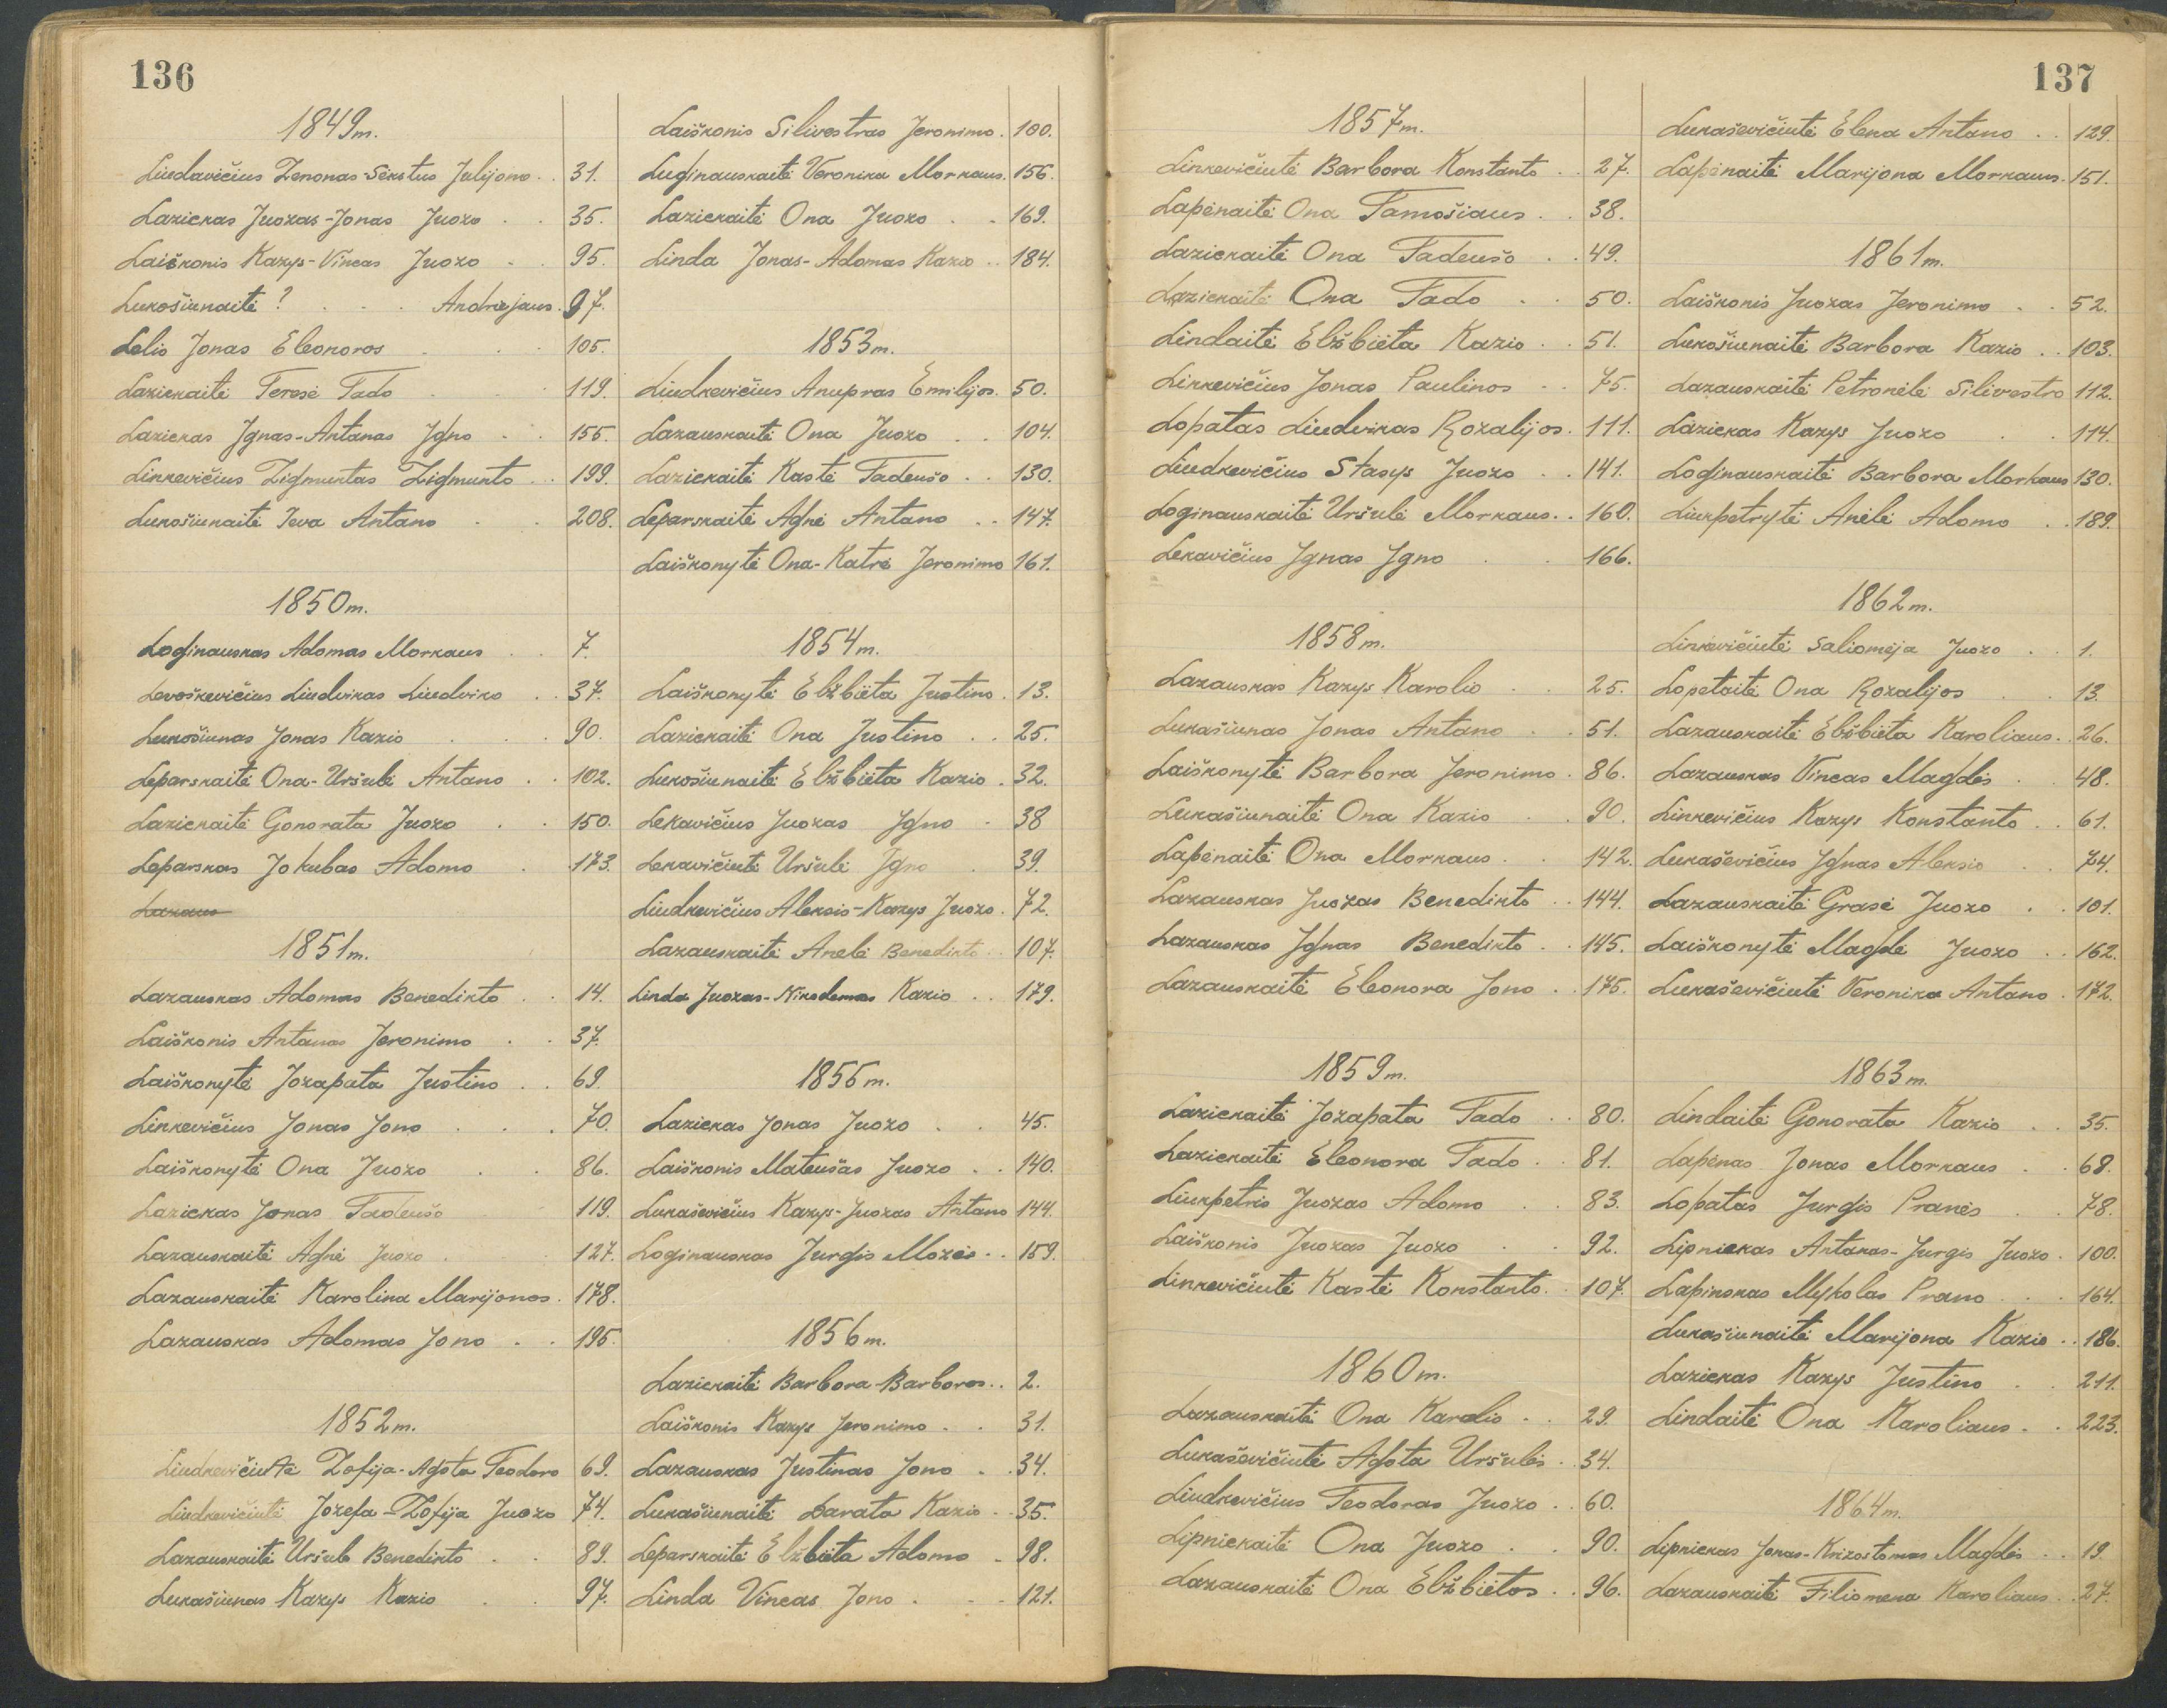 136
1849m.
Liudavičius Zenonas-Sekstus Julijono 31.
Lazickas Juozas-Jonas Juozo 35.
Laiškonis Kazys-Vincas Juozo 95.
Lukošiunaitė ? Andriejaus 97.
Lelis Jonas Eleonoros 105.
Lazickaitė Teresė Tado 119.
Lazickas Ignas-Antanas Igno 155.
Linkevičius Zigmuntas Zigmunto 199.
Lukošiunaitė Ieva Antano 208.
1850m.
Loginauskas Adomas Morkaus 7.
Levoškevičius Liudvikas Liudviko 37.
Lukošiunas Jonas Kazio 90.
Leparskaitė Ona-Uršulė Antano 102.
Lazickaitė Gonorata Juozo 150.
Leparskas Jokubas Adomo 173.
1851m.
Lazauskas Adomas Benedikto 14.
Laiškonis Antanas Jeronimo 37.
Laiškonytė Jozapata Justino 69.
Linkevičius Jonas Jono 70.
Laiškonytė Ona Juozo 86.
Lazickas Jonas Tadeušo 119.
Lazauskaitė Agnė Juozo 127.
Lazauskaitė Karolina Marijonos 178.
Lazauskas Adomas Jono 195.
1852m.
Liudkevičiutė Zofija-Agota Teodoro 69.
Liudkevičiutė Jozefa-Zofija Juozo 74.
Lazauskaitė Uršulė Benedikto 89.
Lukašiunas Kazys Kazio 97.
Laiškonis Silivestras Jeronimo 100.
Luginauskaitė Veronika Morkaus 156.
Lazickaitė Ona Juozo 169.
Linda Jonas-Adomas Kazio 184.
1853m.
Liudkevičius Anupras Emilijos 50.
Lazauskaitė Ona Juozo 104.
Lazickaitė Kastė Tadeušo 130.
Leparskaitė Agnė Antano 147.
Laiškonytė Ona-Katrė Jeronimo 161.
1854m.
Laiškonytė Elžbieta Justino 13.
Lazickaitė Ona Justino 25.
Lukošiunaitė Elžbieta Kazio 32.
Lekavičius Juozas Igno 38
Lekavičiutė Uršulė Igno 39.
Liudkevičius Aleksis-Kazys Juozo 72.
Lazauskaitė Anelė Benedikto 107.
Linda Juozas-Nikodemas Kazio 179.
1855m.
Lazickas Jonas Juozo 45.
Laiškonis Mateušas Juozo 140.
Lukaševičius Kazys-Juozas Antano 144.
Loginauskas Jurgis Mozės 159.
1856m.
Lazickaitė Barbora Barboros 2.
Laiškonis Kazys Jeronimo 31.
Lazauskas Justinas Jono 34.
Lukašiunaitė Darata Kazio 35.
Leparskaitė Elžbieta Adomo 98.
Linda Vincas Jono 121.
137
1857m.
Linkevičiutė Barbora Konstanto 27.
Lapėnaitė Ona Tamošiaus 38.
Lazickaitė Ona Tadeušo 49.
Lazickaitė Ona Tado 50.
Lindaitė Elžbieta Kazio 51.
Linkevičius Jonas Paulinos 75.
Lopatas Liudvikas Rozalijos 111.
Liudkevičius Stasys Juozo 141.
Loginauskaitė Uršulė Morkaus 160.
Lekavičius Ignas Igno 166.
1858m.
Lazauskas Kazys Karolio 25.
Lukašiunas Jonas Antano 51.
Laiškonytė Barbora Jeronimo 86.
Lukašiunaitė Ona Kazio 90.
Lapėnaitė Ona Morkaus 142.
Lazauskas Juozas Benedikto 144.
Lazauskas Ignas Benedikto 145.
Lazauskaitė Eleonora Jono 175.
1859m.
Lazickaitė Jozapata Tado 80.
Lazickaitė Eleonora Tado 81.
Liukpetris Juozas Adomo 83.
Laiškonis Juozas Juozo 92.
Linkevičiutė Kastė Konstanto 107.
1860m.
Lazauskaitė Ona Karolio 29.
Lukaševičiutė Agota Uršulės 34.
Liudkevičius Teodoras Juozo 60.
Lipnickaitė Ona Juozo 90.
Lazauskaitė Ona Elžbietos 96.
Lukaševičiutė Elena Antano 129.
Lapėnaitė Marijona Morkaus 151.
1861m.
Laiškonis Juozas Jeronimo 52.
Lukošiunaitė Barbora Kazio 103.
Lazauskaitė Petronėlė Silivestro 112.
Lazickas Kazys Juozo 114.
Loginauskaitė Barbora Morkaus 130.
Liukpetrytė Anėlė Adomo 189.
1862m.
Linkevičiutė Saliomėja Juozo 1.
Lopetaitė Ona Rozalijos 13.
Lazauskaitė Elžbieta Karoliaus 26.
Lazauskas Vincas Magdės 48.
Linkevičius Kazys Konstanto 61.
Lukaševičius Ignas Aleksio 74.
Lazauskaitė Grasė Juozo 101.
Laiškonytė Magdė Juozo 162.
Lukaševičiutė Veronika Antano 172.
1863m.
Lindaitė Gonorata Kazio 35.
Lapėnas Jonas Morkaus 68.
Lopatas Jurgis Pranės 78.
Lipnickas Antanas-Jurgis Juozo 100.
Lapinskas Mykolas Prano 164.
Lukašiunaitė Marijona Kazio 186.
Lazickas Kazys Justino 211.
Lindaitė Ona Karoliaus 223.
1864m.
Lipnickas Jonas-Krizostomas Magdės 19.
Lazauskaitė Filiomena Karoliaus 27.